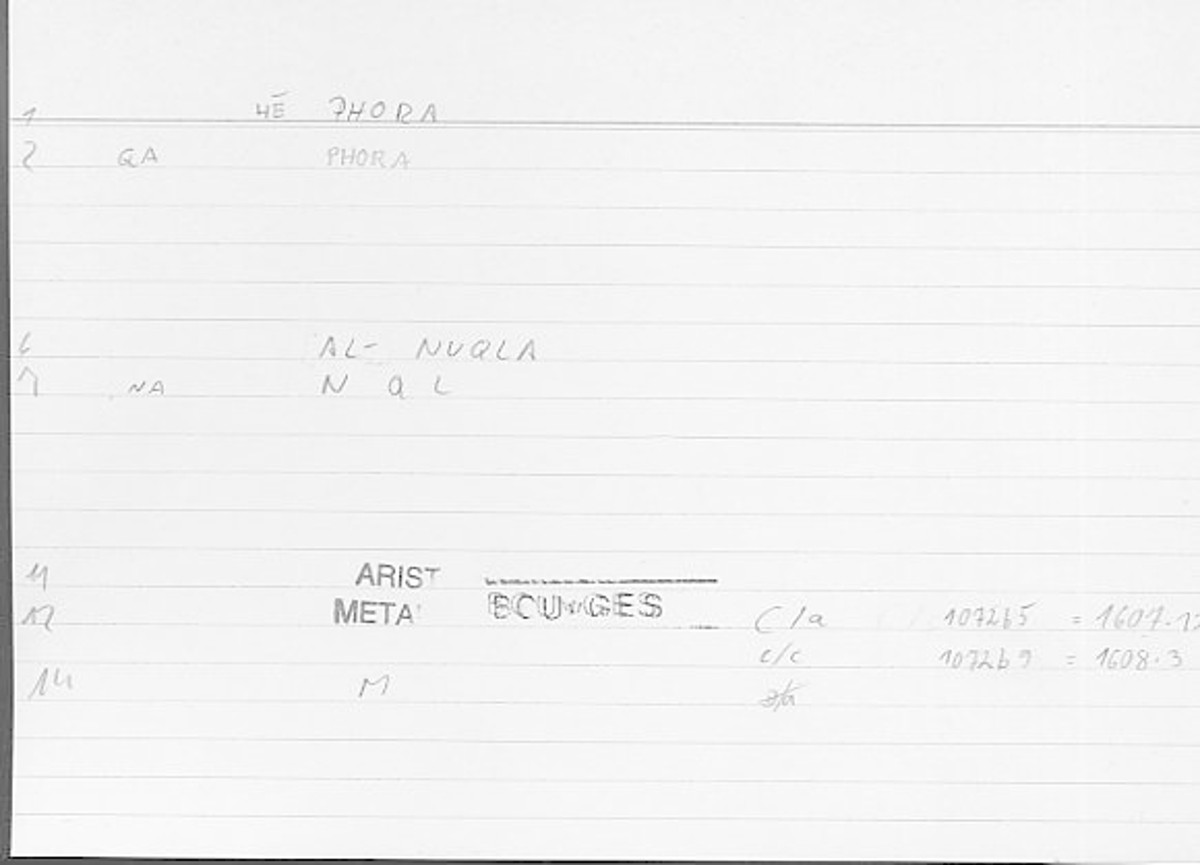 1 HĒ PHORA
2 GA PHORA
6 AL- NUQLA
7 NA N Q L
11 ARIST
12 META BOUYGES C/a 1072b5 = 1607.12
c/c 1072b9 = 1608.3
14 M